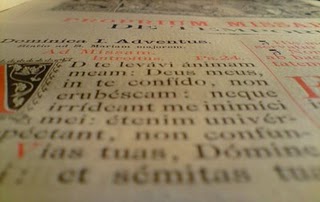 PROPRIUM MISSA
DE TEMPO
Dominica I. Adventus.
Statio ad S. Mariam majorem.
Ad Missam.
Introitus. Ps. 24.
AD te levávi ánimam
meam: Deus meus,
in te confído, non
erubéscam: neque
irrídeant me inimíci
mei: étenim univér-
péctant, non confun-
Vias tuas, Dómine
i: et sémitas tuas